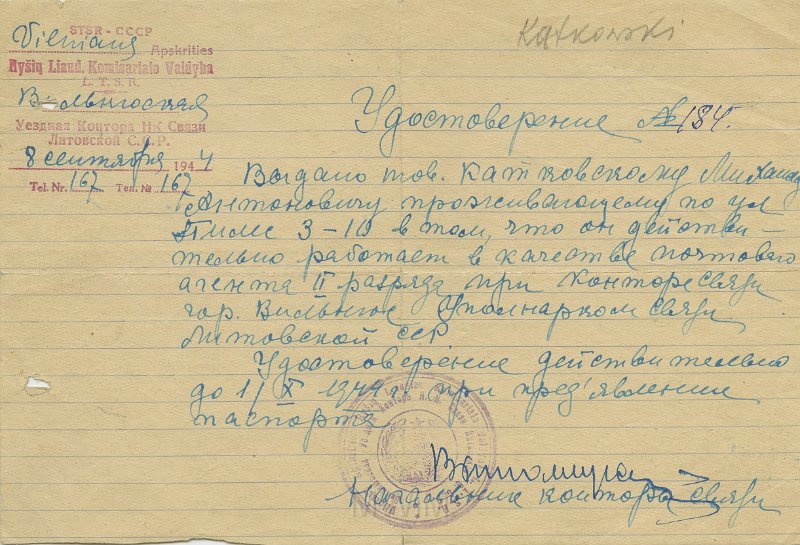 Kątkowski
STSR - CCCP
Vilniaus
Apskrities
Ryšių Liaud. Komisariato Valdyba
L. T. S. R.
Вильнюская
Уездная Контора НК Связи
Литовской С.С.Р.
8 сентября 1944
Tel. Nr. 167 Тел. № 167
Удостоверение № 184.
Выдано тов. Катковскому Михаилу
Антоновичу проживающему по ул
3-10 в том, что он действи-
тельно работает в качестве почтового
агента II разряда при Конторе Связи
гор. Вильнюс Уполнарком Связи
Литовской ССР
Удостоверение действительно
до 1/X 1944 г. при пред'явлении
паспорта
Начальник конторы Связи